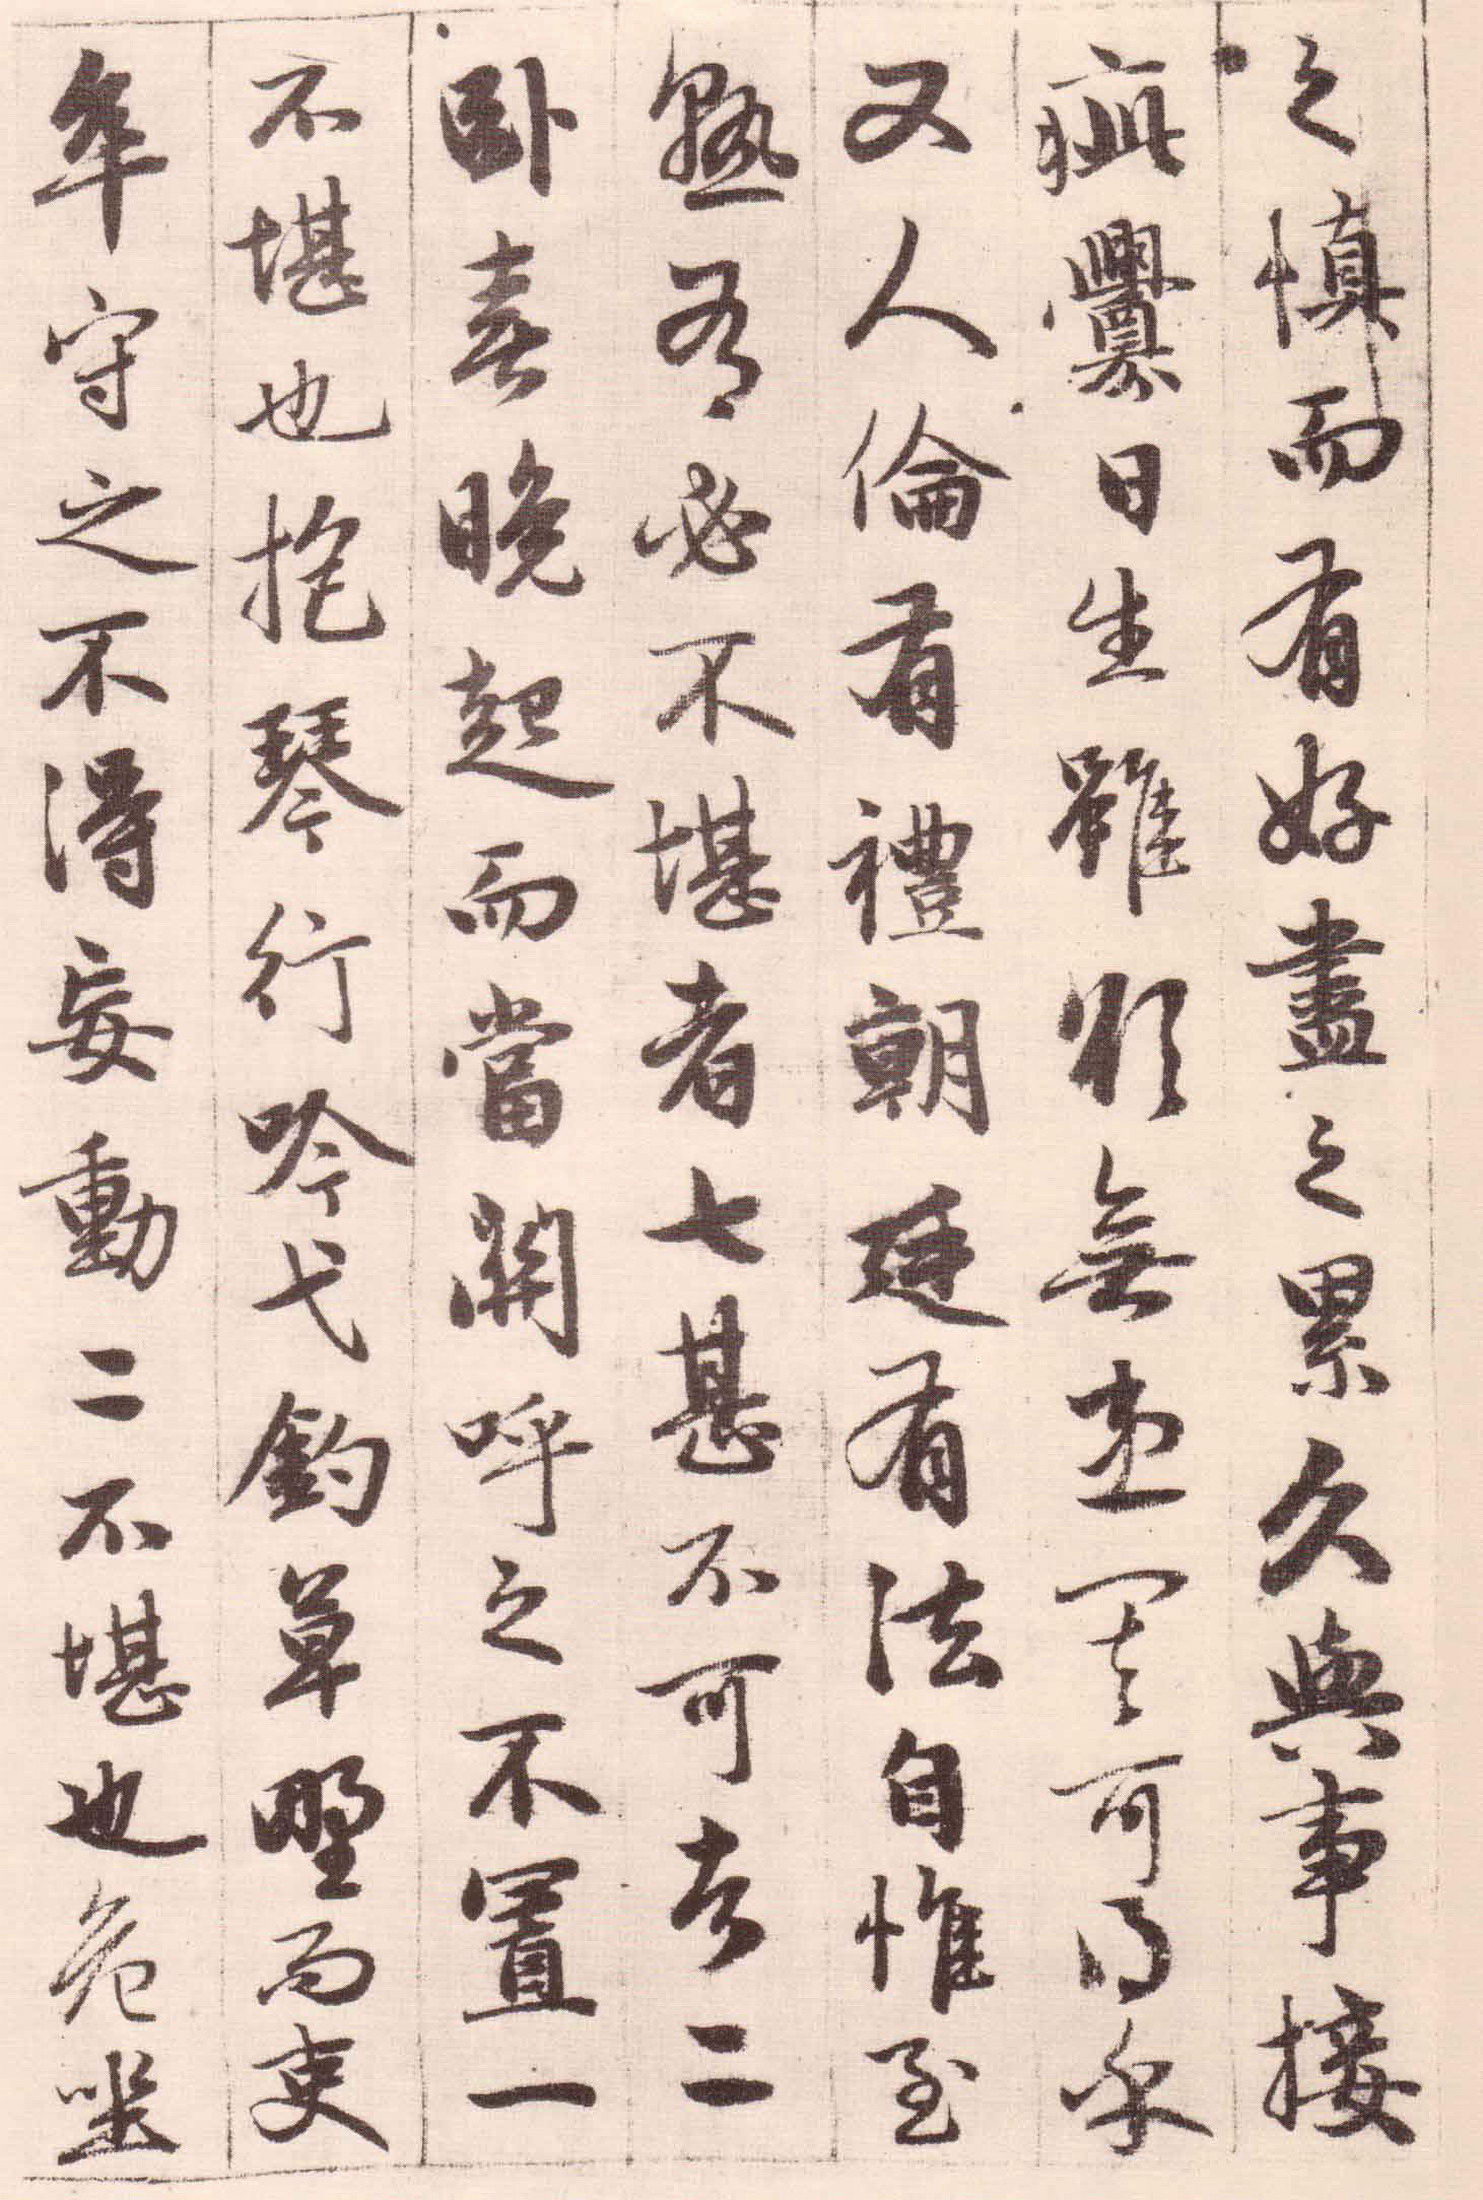 之慎而有好盡之累久與事接
疵釁日生雖欲無患其可得乎
又人倫有禮朝廷有法自惟至
熟有必不堪者七甚不可者二
卧喜晚起而當關呼之不置一
不堪也抱琴行吟弋釣草野而吏
卒守之不得妄動二不堪也危坐